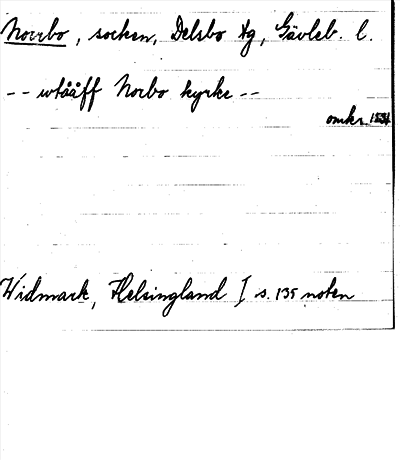 Norrbo, socken, Delsbo tg, Gävleb. l.
-- wtååff Norbo kyrke --
omkr.
Widmark, Helsingland I s. 135 noten